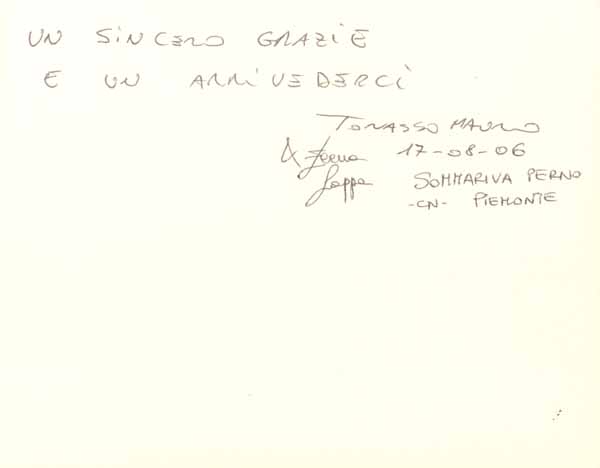 UN SINCERO GRAZIE
E UN ARRIVEDERCI
TORASSO MAURO
& 17-08-06
SOMMARIVA PERNO
-CN- PIEMONTE